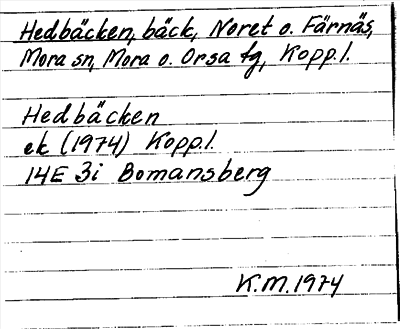 Hedbäcken, bäck, Noret o. Färnäs,
Mora sn, Mora o. Orsa tg, Kopp.l.
Hedbäcken
ek (1974) Kopp.l.
14E 3i Bomansberg
K.M. 1974